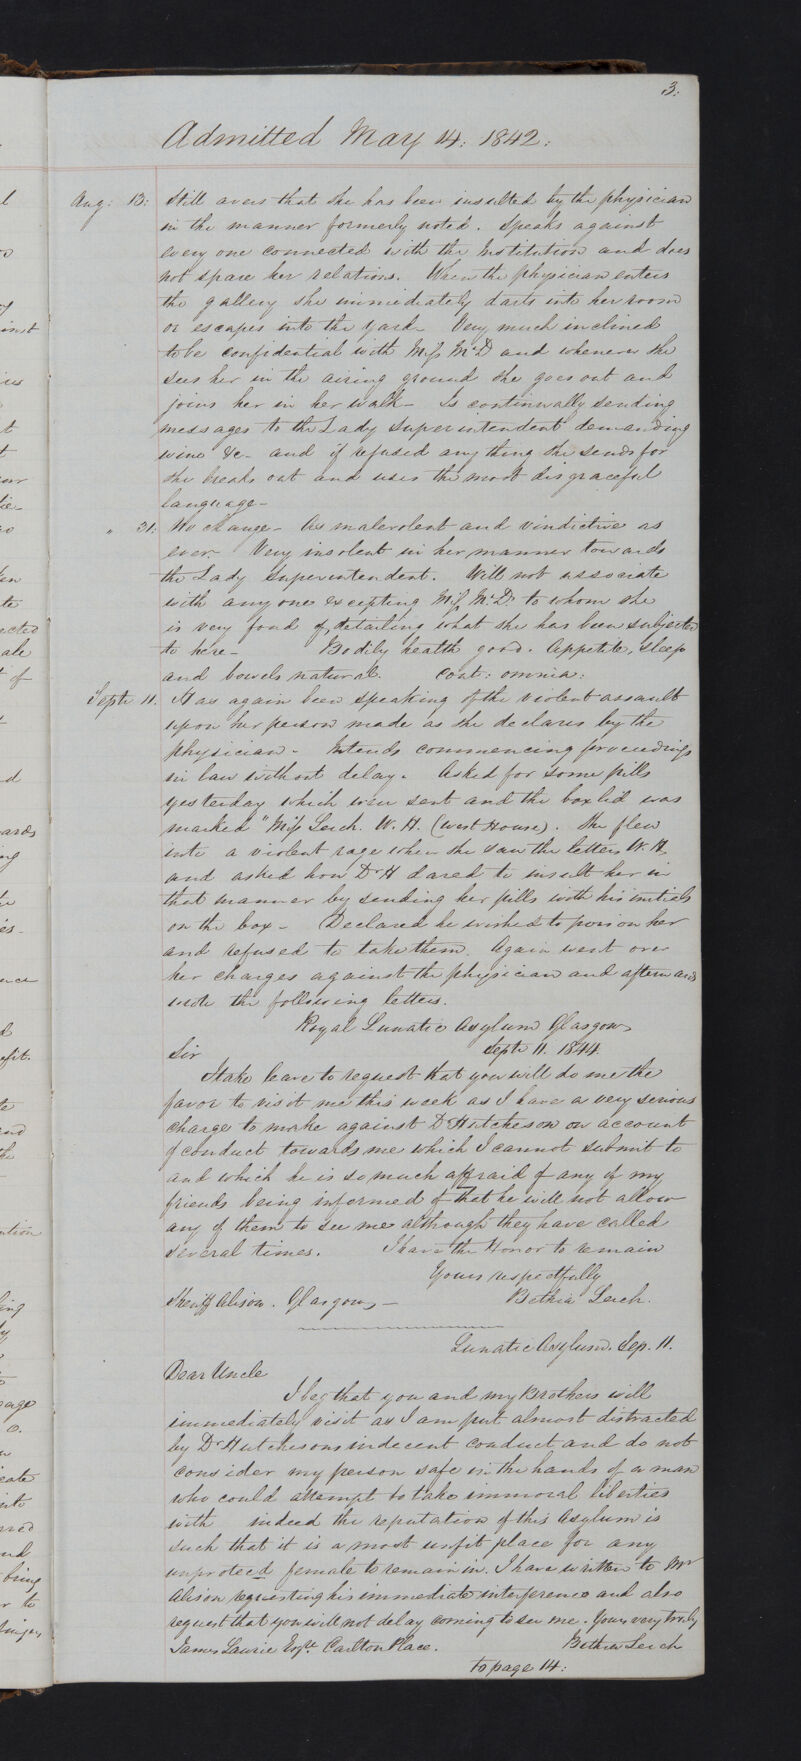 3.
Admitted May 14: 1842:
Aug: 13: Still avers that she has been insulted by the physician
in the manner formerly noted. Speaks against
every one connected with the Institution and does
not spare her relations. When the physician enters
the gallery she immediately darts into her room
or escapes into the yard - Very much inclined
to be confidential with Miss McD and whenever she
sees her in the airing ground she goes out and
joins her in her walk - Is continually sending
messages to the Lady Superintendent demanding
wine &c - and if refused any thing she sends for
she breaks out and uses the most disgraceful
language -
" 31: No change - As malevolent and vindictive as
ever - Very insolent in her manner towards
the Lady Superintendent. Will not associate
with any one excepting Miss McD. to whom she
is very fond of detailing what she has been subjected
to here - Bodily health good. Appetite, sleep
and bowels natural. Cont: omnia:
Septr 11. Has again been speaking of the violent assault
upon her person made as she declares by the
physician - Intends commencing proceedings
in law without delay. Asked for some pills
yesterday which were sent and the box lid was
marked "Miss Leich. W. H. (West House). She flew
into a violent rage when she saw the letters W. H.
and asked how Dr H dared to insult her in
that manner by sending her pills with his initials
on the box - Declared he wished to poison her
and refused to take them. Again went over
her charges against the physician and afterwards
wrote the following letters.
Royal Lunatic Asylum Glasgow
Septr 11. 1844
Sir
I take leave to request that you will do me the
favor to visit me this week as I have a very serious
charge to make against Dr Hutcheson on account
of conduct towards me which I cannot submit to
and which he is so much affraid of any of my
friends being informed of that he will not allow
any of them to see me although they have called
several times. I have the Honor to remain
Yours respectfully
Sheriff Alison. Glasgow - Bethia Leich.
Lunatic Asylum. Sep. 11.
Dear Uncle
I beg that you and my Brothers will
immediately visit as I am put almost distracted
by Dr Hutchesons indecent conduct and do not
consider my person safe in the hands of a man
who could attempt to take immoral liberties
with indeed the reputation of this Asylum is
such that it is a most unfit place for any
unproteed female to remain in. I have written to Mr
Alison requesting his immediate interference and also
request that you will not delay coming to see me. Yours very truly
James Laurie Esqre Carlton Place. Bethia Leich
To page 14: